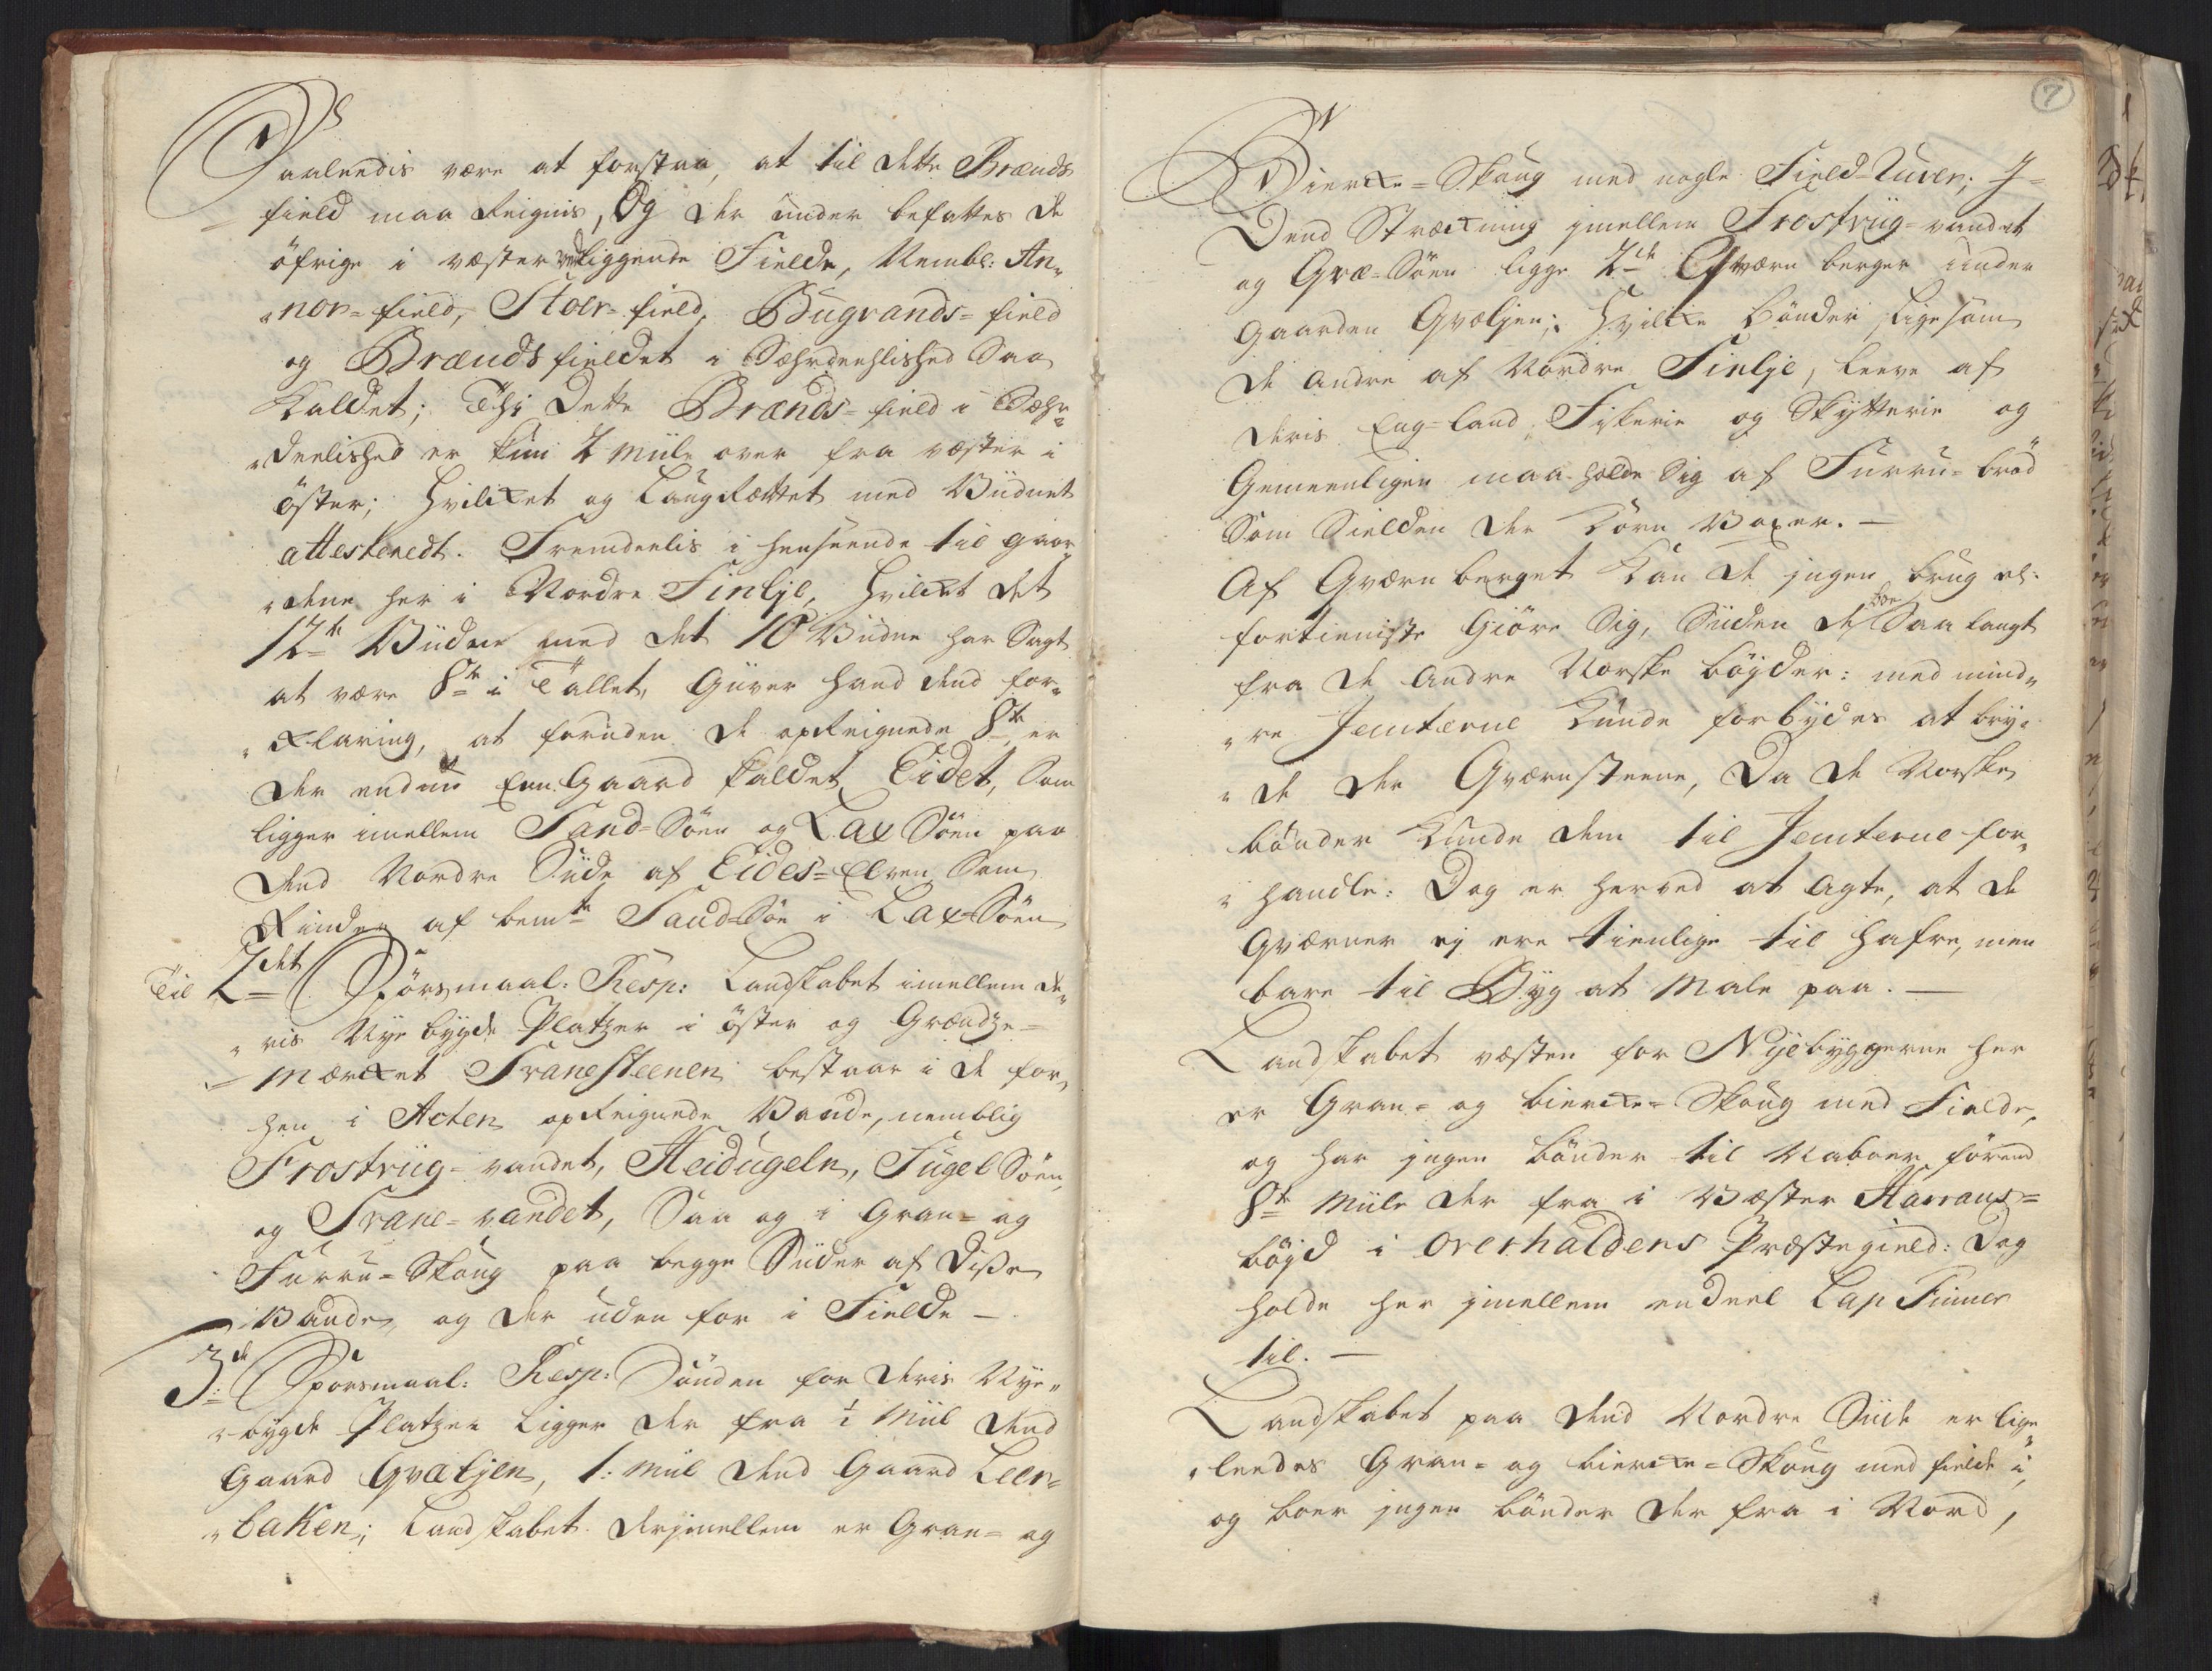 Saaleedis være at forstaa, at til dette Brænds
field maa reignis, Og der under befattes de
öfrige i væster ved liggende Fielde, Nembl: An„
„nor=field, Stoer=field, Bugvands=field
og Brændsfieldet i Særdeehlished Saa
Kaldet; Thi dette Brænds=field i Sær„
„deelished er kun 2 Miile over fra væster i
öster; hvilcket og Laugrættet med Viidnet
attesteredt. Fremdeelis i henseende til gaar„
„dene her i Nordre Finlje, hvilcket det
12te Viidne med det 10 Viidne har Sagt
at være 8te i Tallet, Giiver hand dend for„
„klaring, at foruden de opreignede 8te er
der endnu een Gaard kaldet Eidet, Som
ligger imellem Sand=Söen og Lax Söen paa
dend Nordre Siide af Eides=Elven Som
Rinder af bemte Sand Söe i Lax=Söen
Til 2det Spörsmaal: Resp: Landskabet imellem de„
„ris Nye bygde Platzer i öster og Grændze=
Mærcket Tranesteenen bestaar i de for„
hen i Acten opreignede Vande, nemblig
Frostviig=vandet, Heidugeln, Fugel Söen,
og Trane=vandet, Saa og i Gran= og
Furru=Skoug paa begge Siider af Disse
Vande, og der uden for i Fielde —
3de Spörsmaal: Resp: Sönden for deris Nye„
„bygde Platzer Ligger der fra ½ Miil dend
Gaard Gvæljen, 1: Miil dend Gaard Leer„
„baken; Landskabet derjmellem er Gran= og
7
Biercke=Skoug med nogle Field=Tuver; J
Dend Strækning jmellem Frostviig=vandet
og Gvæ=Söen ligge 2de Qværn berger under
gaarden Gvæljen; hvilcke Bönder, Ligesom
de andre af Nordre Finlje, leeve af
deris Eng=land, Fiskerie og Skytterie og
Gemeenligen maa holde Sig af Furru=bröd
Som Sielden der Korn Voxer. —
Af Qværn berget kan de jngen brug el:
fortieniste Giöre Sig, Siiden de boe Saa langt
fra de andre Norske böyder: med mind„
„re Jemterne kunde forbydes at bry„
„de der Qværnsteene, Da de Norske
bönder kunde dem til Jemterne for„
„handle: Dog er herved at agte, at de
Qværner ej ere tienlige til hafre, men
bare til Byg at Male paa. —
Landskabet væsten for Nyebyggerne her
er Gran= og biercke=Skoug med Fielde,
og har jngen bönder til Naboer förend
8te Miile der fra i Væster Harrans=
böyd i Overhaldens Præstegield: Dog
holde her jmellem endeel Lap Finner
til. —
Landskabet paa dend Nordre Siide er lige„
„leedes Gran= og biercke=Skoug med fielde i,
og boer jngen bönder der fra i Nord,